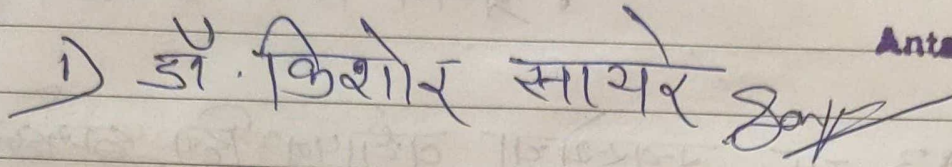 1) डॉ. किशोर सायरे
Anta